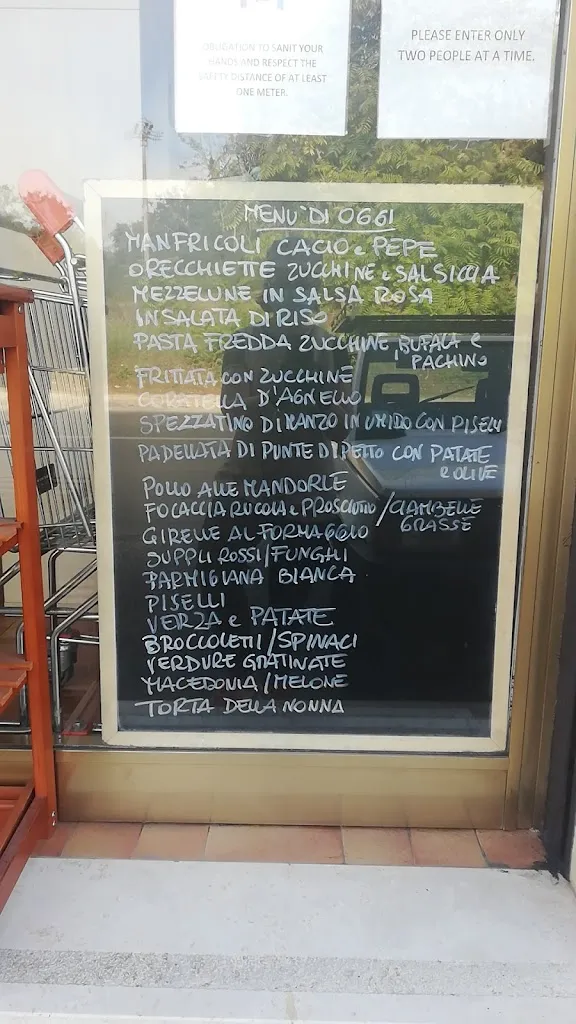 OBLIGATION TO SANIT YOUR
HANDS AND RESPECT THE
SAFETY DISTANCE OF AT LEAST
ONE METER.
PLEASE ENTER ONLY
TWO PEOPLE AT A TIME.
MENU' DI OGGI
MANFRICOLI CACIO e PEPE
ORECCHIETTE ZUCCHINE e SALSICCIA
MEZZELUNE IN SALSA ROSA
INSALATA DI RISO
PASTA FREDDA ZUCCHINE, BUFALA e
PACHINO
FRITTATA CON ZUCCHINE
CORATELLA D'AGNELLO
SPEZZATINO DI MANZO IN UMIDO CON PISELLI
PADELLATA DI PUNTE DI PETTO CON PATATE
e OLIVE
POLLO ALLE MANDORLE
FOCACCIA RUCOLA e PROSCIUTTO / CIAMBELLE
GRASSE
GIRELLE AL FORMAGGIO
SUPPLI ROSSI/FUNGHI
PARMIGIANA BIANCA
PISELLI
VERZA e PATATE
BROCCOLETTI/SPINACI
VERDURE GRATINATE
MACEDONIA/MELONE
TORTA DELLA NONNA